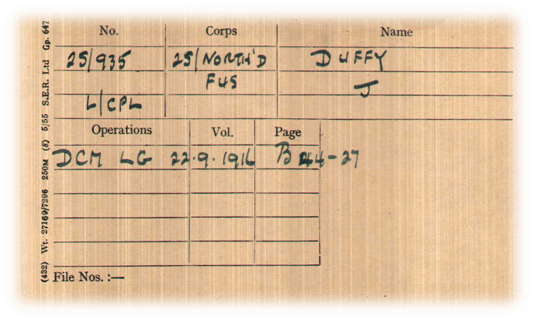 No. Corps Name
25/935 25/NORTH'D DUFFY
FUS J
L/CPL
Operations Vol. Page
DCM LG 22.9.1916 B 44-27
File Nos. :—
(432) Wt. 27169/7296 250M (8) 5/55 S.E.R. Ltd Gp. 647